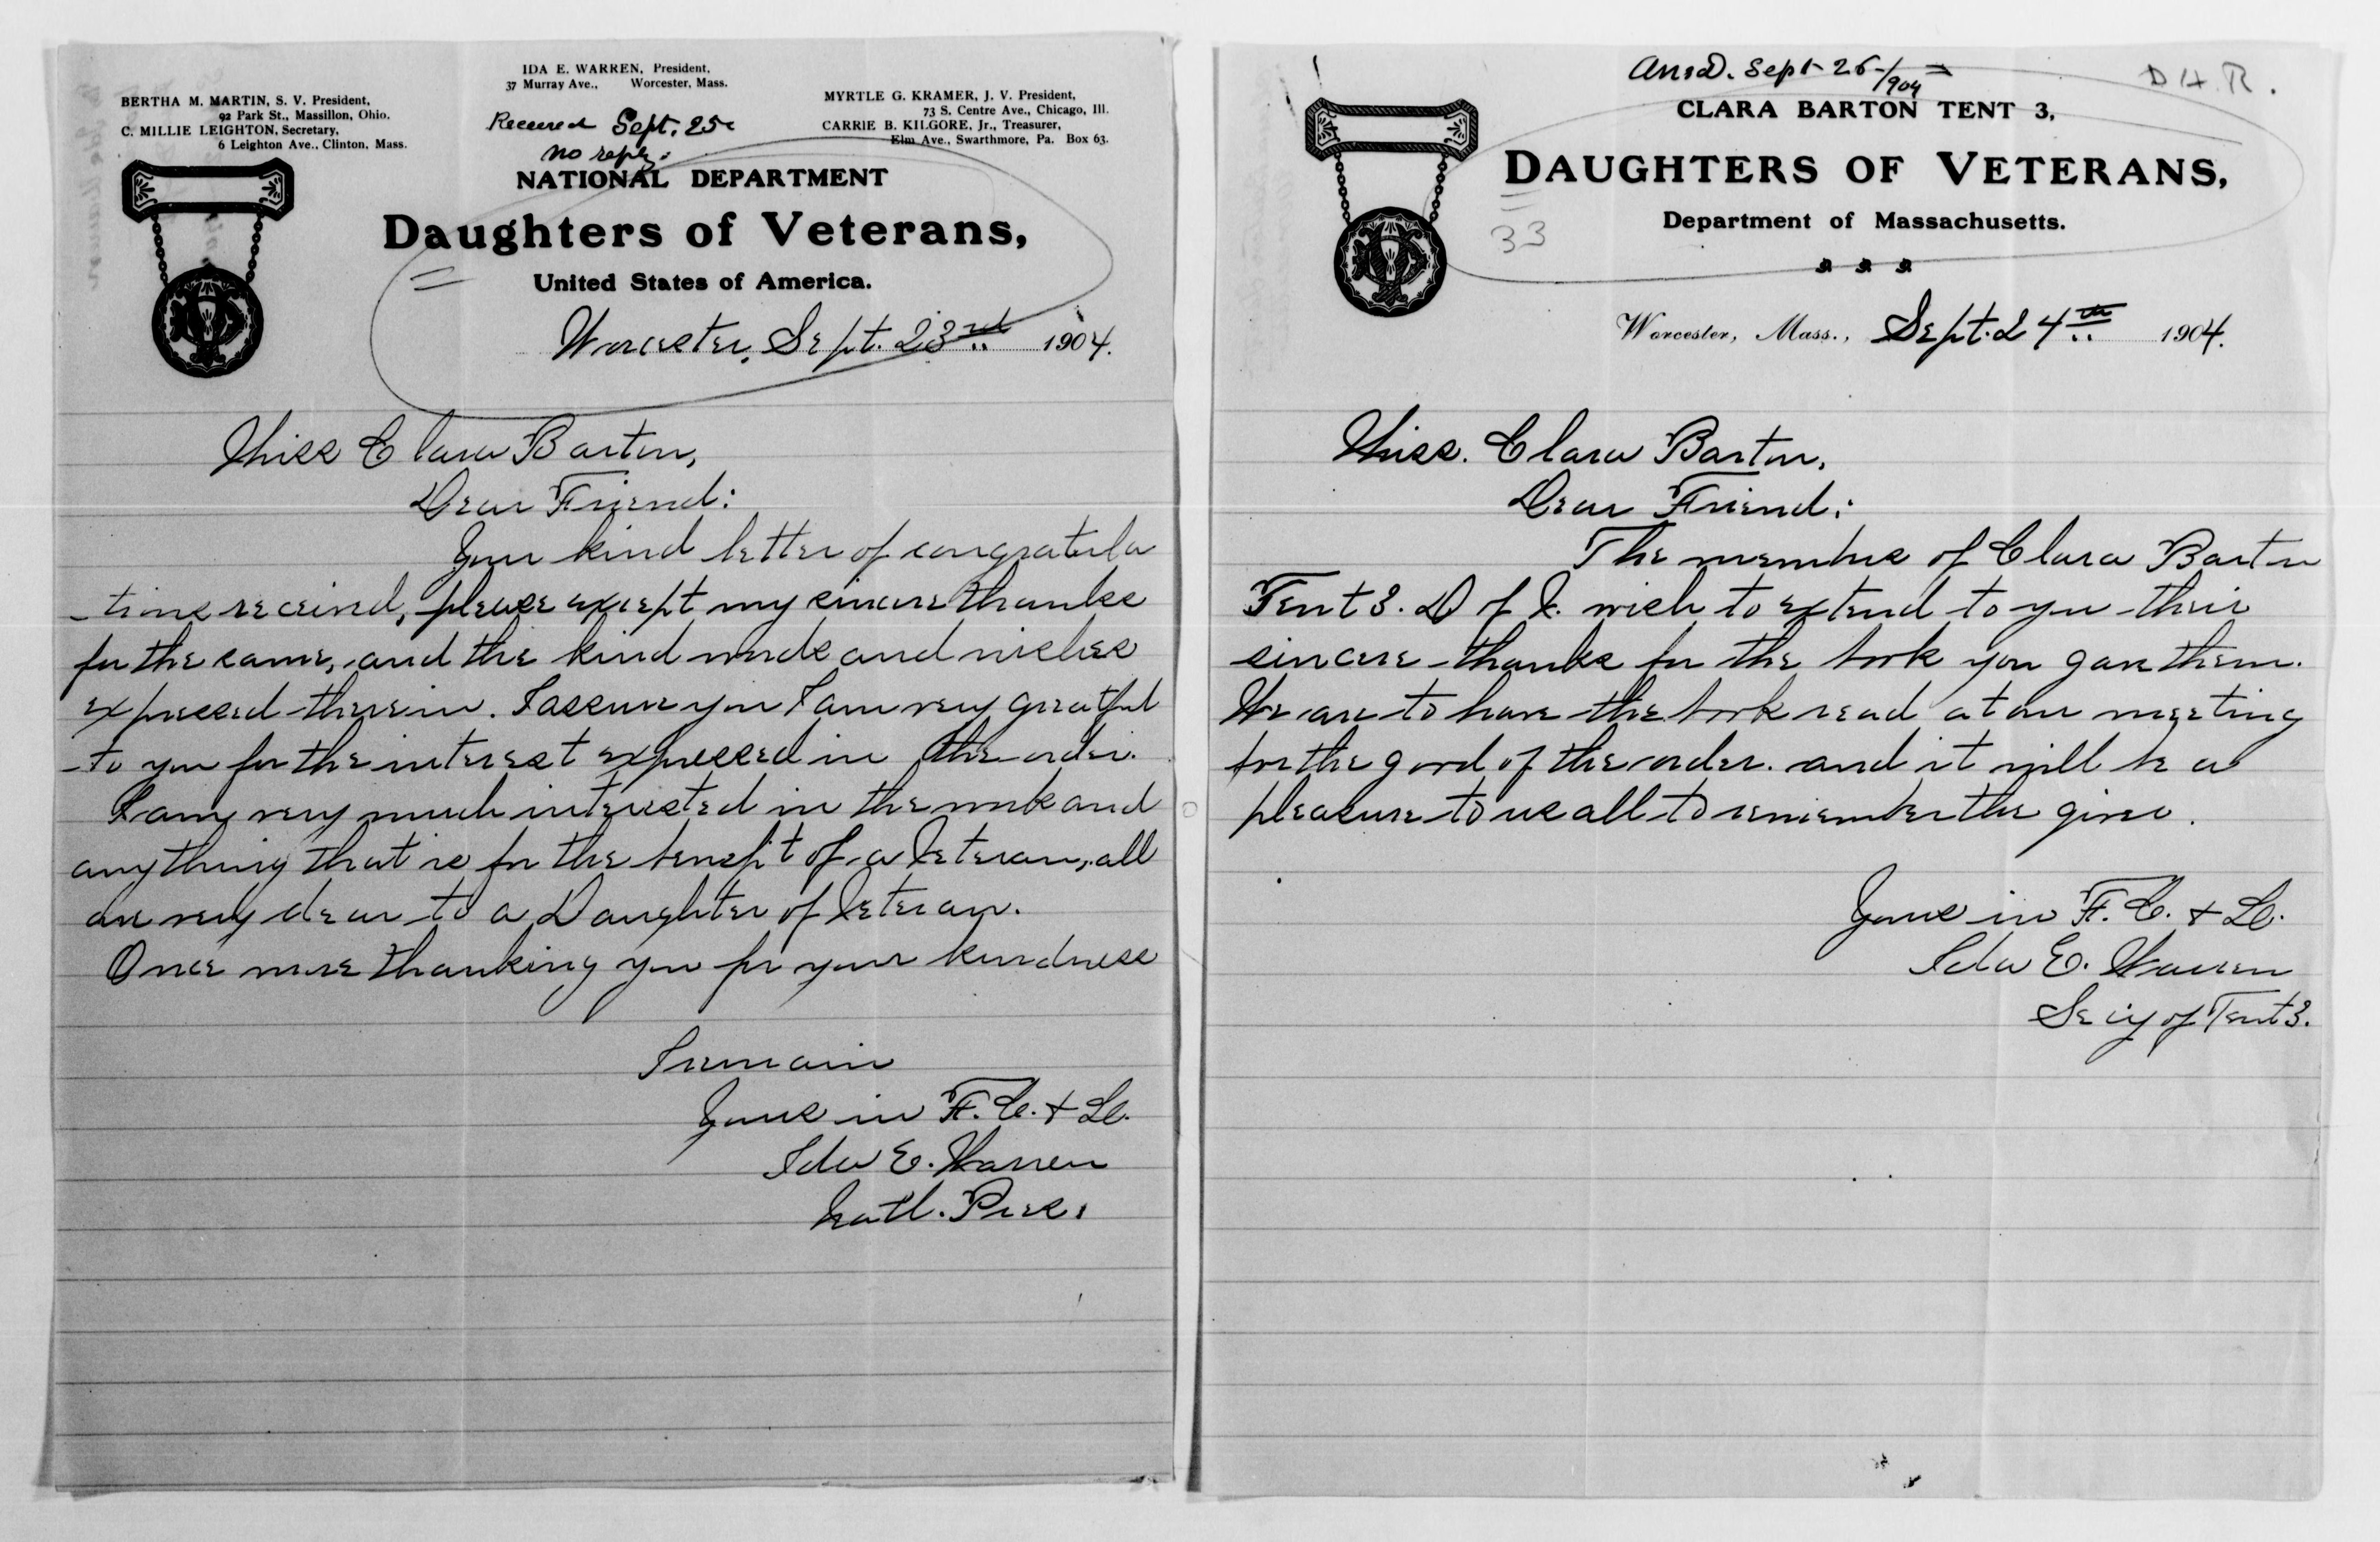 IDA E. WARREN, President,
37 Murray Ave., Worcester, Mass.
BERTHA M. MARTIN, S. V. President,
92 Park St., Massillon, Ohio.
C. MILLIE LEIGHTON, Secretary,
6 Leighton Ave., Clinton, Mass.
MYRTLE G. KRAMER, J. V. President,
73 S. Centre Ave., Chicago, Ill.
CARRIE B. KILGORE, Jr., Treasurer,
Elm Ave., Swarthmore, Pa. Box 63.
Received Sept. 25
no reply.
NATIONAL DEPARTMENT
Daughters of Veterans,
United States of America.
Worcester, Sept. 23rd 1904.
Miss Clara Barton,
Dear Friend:
Your kind letter of congratula
-tions received, please except my sincere thanks
for the same, and the kind words and wishes
expressed therein. I assure you I am very greatful
to you for the interest expressed in the order.
I am very much interested in the work and
anything that is for the benefit of a Veteran, all
are very dear to a Daughter of Veteran.
Once more thanking you for your kindness
I remain
Yours in F. C. & L.
Ida E. Warren
Natl. Pres.
Ansd. Sept 26/1904
D H R.
CLARA BARTON TENT 3,
DAUGHTERS OF VETERANS,
33
Department of Massachusetts.
Worcester, Mass., Sept. 24th 1904.
Miss. Clara Barton,
Dear Friend:
The members of Clara Barton
Tent 3. D of V. wish to extend to you their
sincere thanks for the book you gave them.
We are to have the book read at our meeting
for the good of the order. and it will be a
pleasure to us all to remember the giver.
Yours in F. C. & L.
Ida E. Warren
Secy of Tent 3.